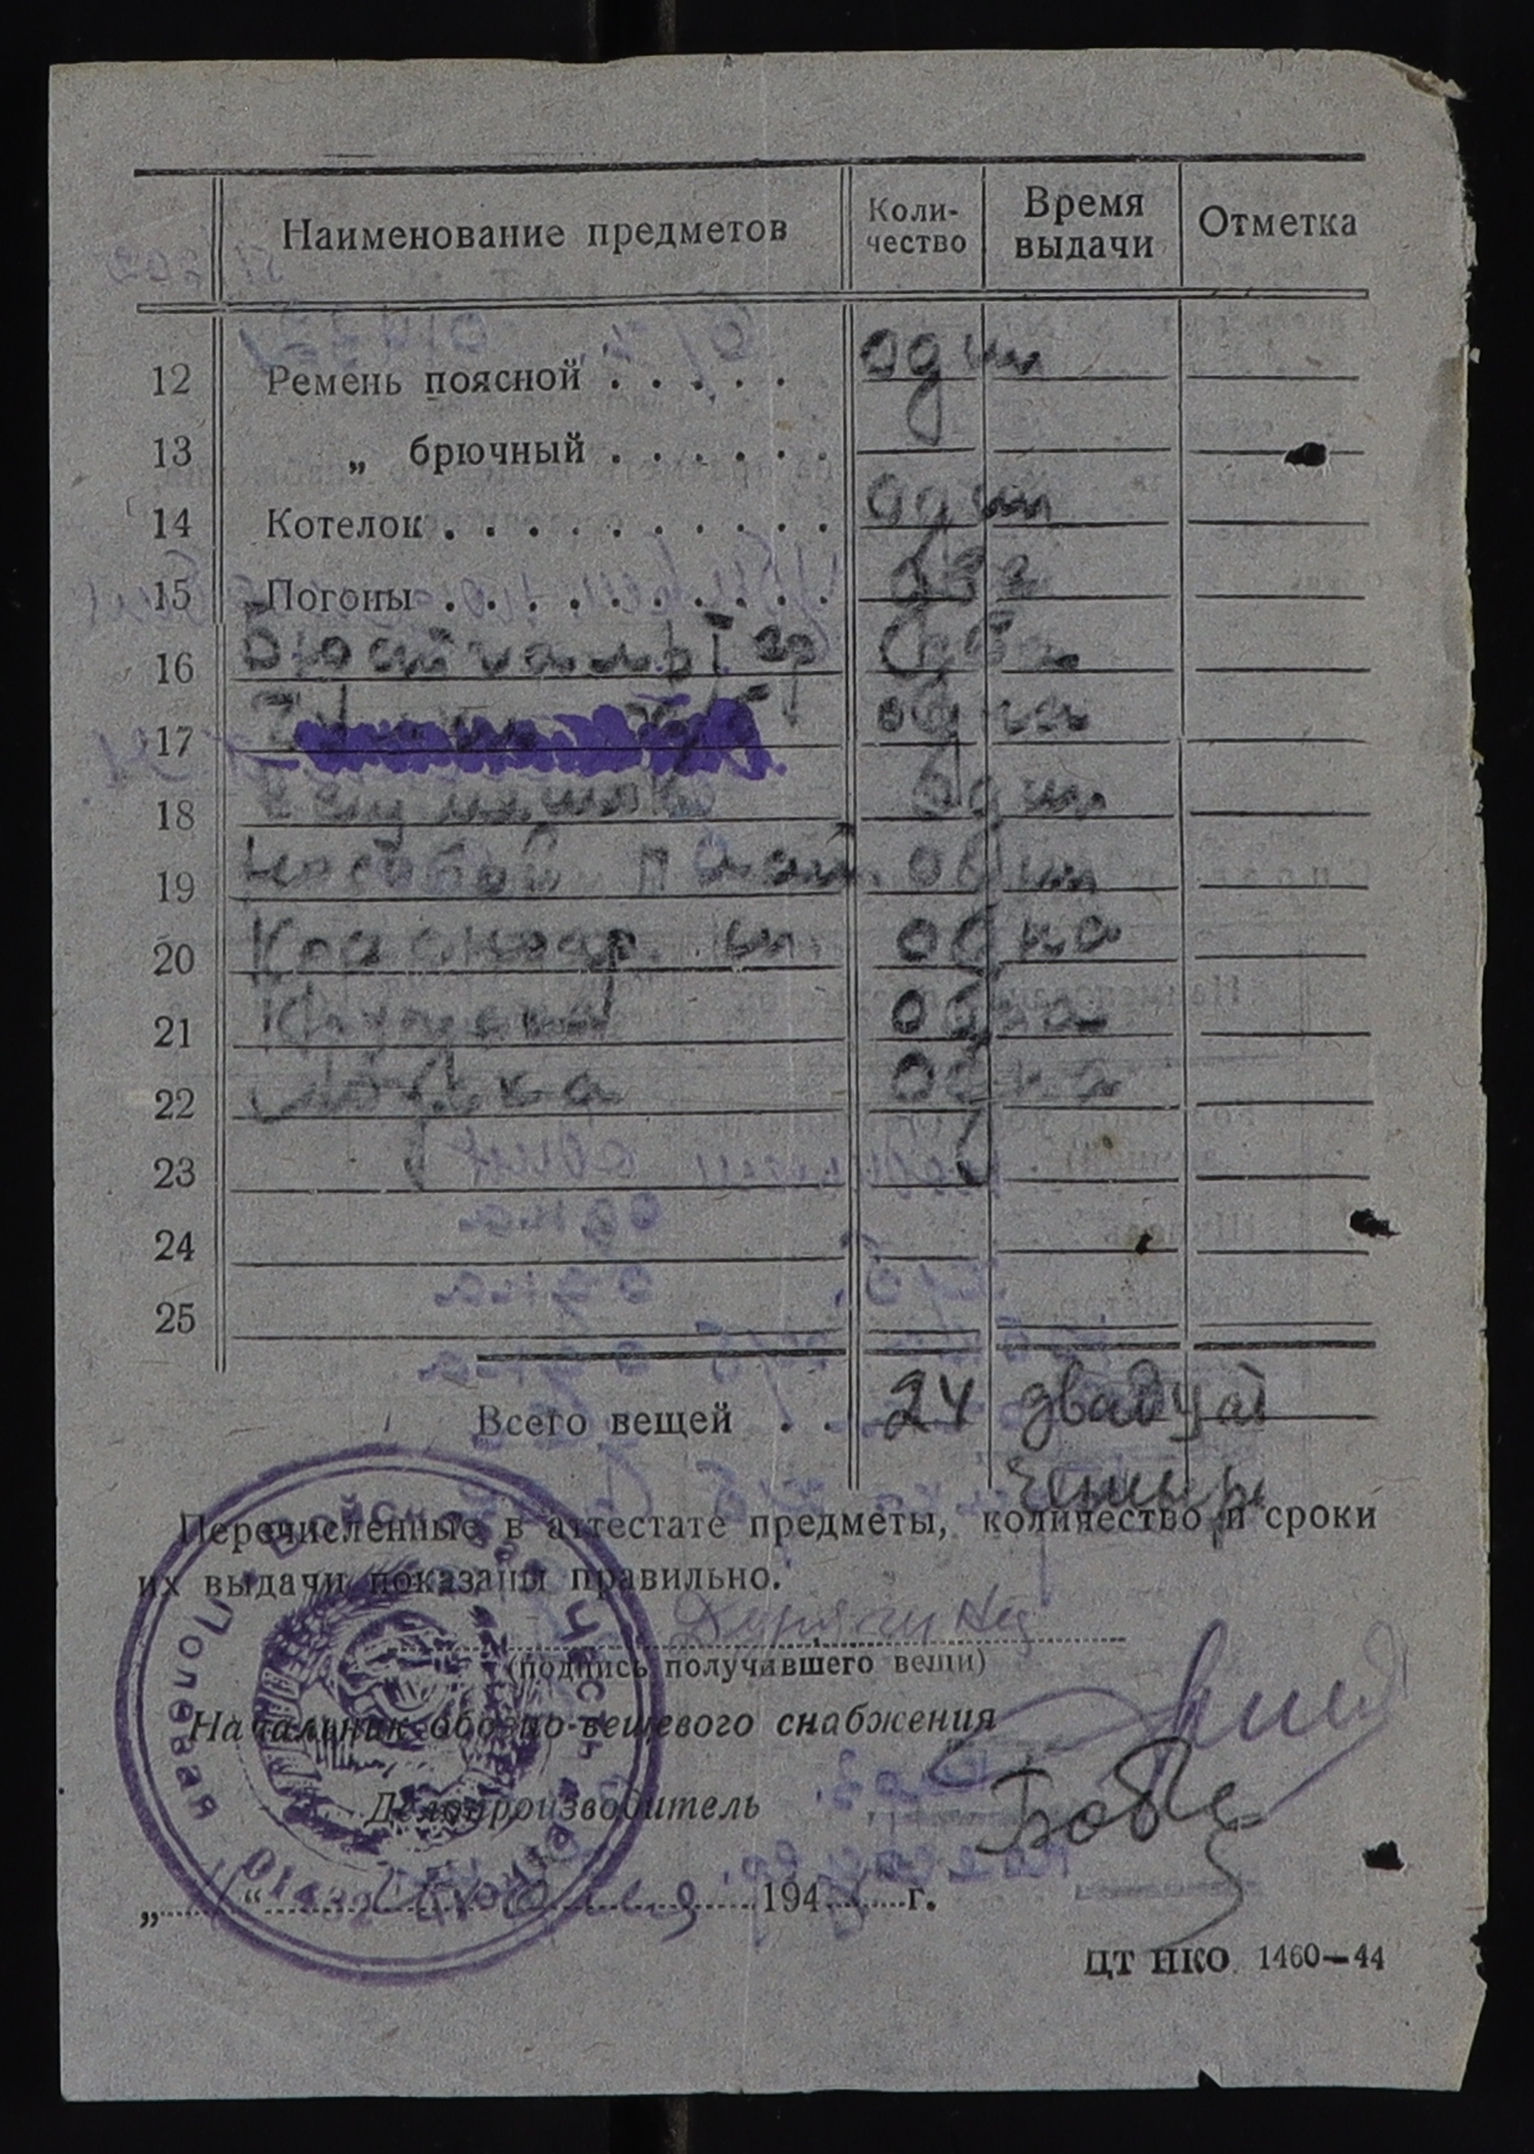 Наименование предметов
Коли-
чество
Время
выдачи
Отметка
12 Ремень поясной . . . . . один
13 „ брючный . . . . . .
14 Котелок . . . . . . . . . . один
15 Погоны . . . . . . . . . . два
16 Бюстгальтер два
17 одна
18 Вещ мешок один
19 Носовой плат. один
20 Красноар. кн. одна
21 одна
22 одна
23
24
25
Всего вещей . . 24 двадцат
четыре
Перечисленные в аттестате предметы, количество и сроки
их выдачи показаны правильно.
(подпись получившего вещи)
Начальник обозно-вещевого снабжения
Делопроизводитель
„ “ 194 г.
ЦТ НКО 1460—44
Полевая Войсковая Часть